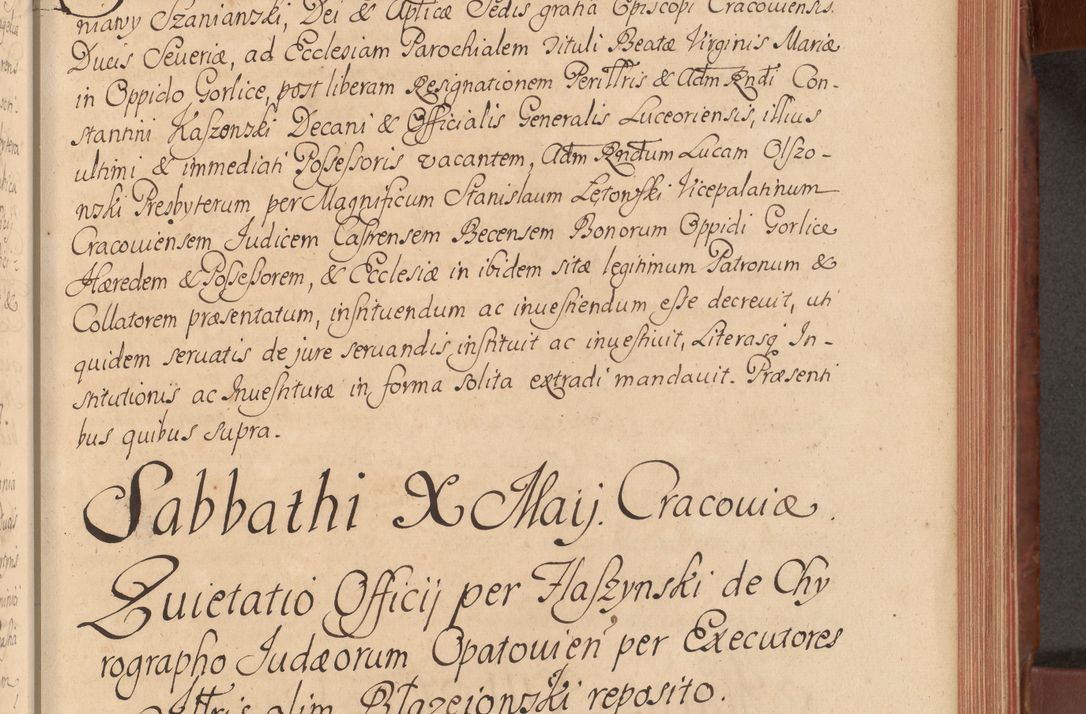 niawy Szanianski, Dei & Apticæ Sedis gratia Episcopi Cracouiensis
Ducis Seueriæ, ad Ecclesiam Parochialem tituli Beatæ Virginis Mariæ
in Oppido Gorlice, post liberam Resignationem Perilltris & Adm Rndi Con-
stantini Kaszenski Decani & Officialis Generalis Luceoriensis, illius
ultimi & immediati Possessoris vacantem, Adm Rndum Lucam Olszo-
nski Presbyterum per Magnificum Stanislaum Lętonski Vicepalatinum
Cracouiensem Judicem Castrensem Becensem Bonorum Oppidi Gorlice
Hæredem & Possessorem, & Ecclesiæ in ibidem sitæ legitimum Patronum &
Collatorem præsentatum, instituendum ac inuestiendum esse decreuit, uti
quidem seruatis de jure seruandis instituit ac inuestiuit, Literasq In-
stitutionis ac Inuestituræ in forma solita extradi mandauit. Præsenti
bus quibus supra.
Sabbathi X Maij. Cracouiæ.
Quietatio Officij per Flaszynski de Chy
rographo Judæorum Opatouien per Executores
Illtris olim Błazeionski reposito.